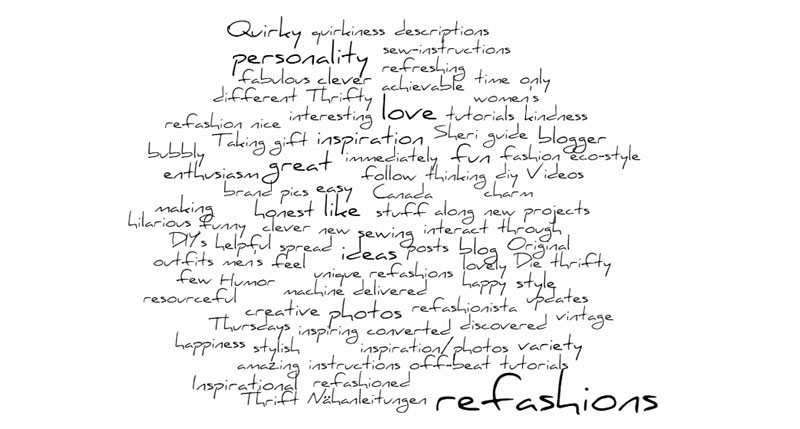 Quirky quirkiness descriptions
personality sew-instructions
refreshing
fabulous clever achievable time only
different Thrifty women's
refashion nice interesting love tutorials kindness
Taking gift inspiration Sheri guide blogger
bubbly immediately fun fashion eco-style
enthusiasm great follow thinking diy Videos
brand pics easy Canada charm
making honest like stuff along new projects
hilarious funny clever new sewing interact through
DIY's helpful spread ideas posts blog Original
outfits men's feel lovely Die thrifty
few Humor unique refashions happy style
resourceful machine delivered
creative photos refashionista updates
Thursdays inspiring converted discovered vintage
happiness stylish inspiration/photos variety
amazing instructions off-beat tutorials
Inspirational refashioned
Thrift Nähanleitungen refashions